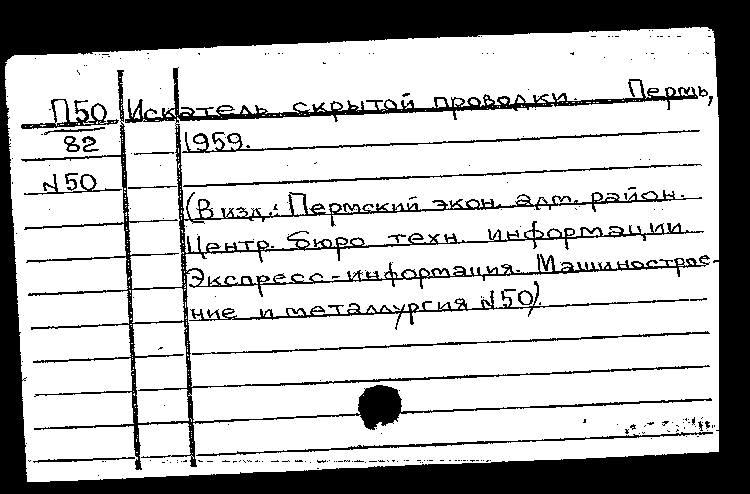 П50 Искатель скрытой проводки. Пермь,
82 1959.
N50
(В изд.: Пермский экон. адм. район.
Центр. бюро техн. информации.
Экспресс-информация. Машинострое-
ние и металлургия N50).